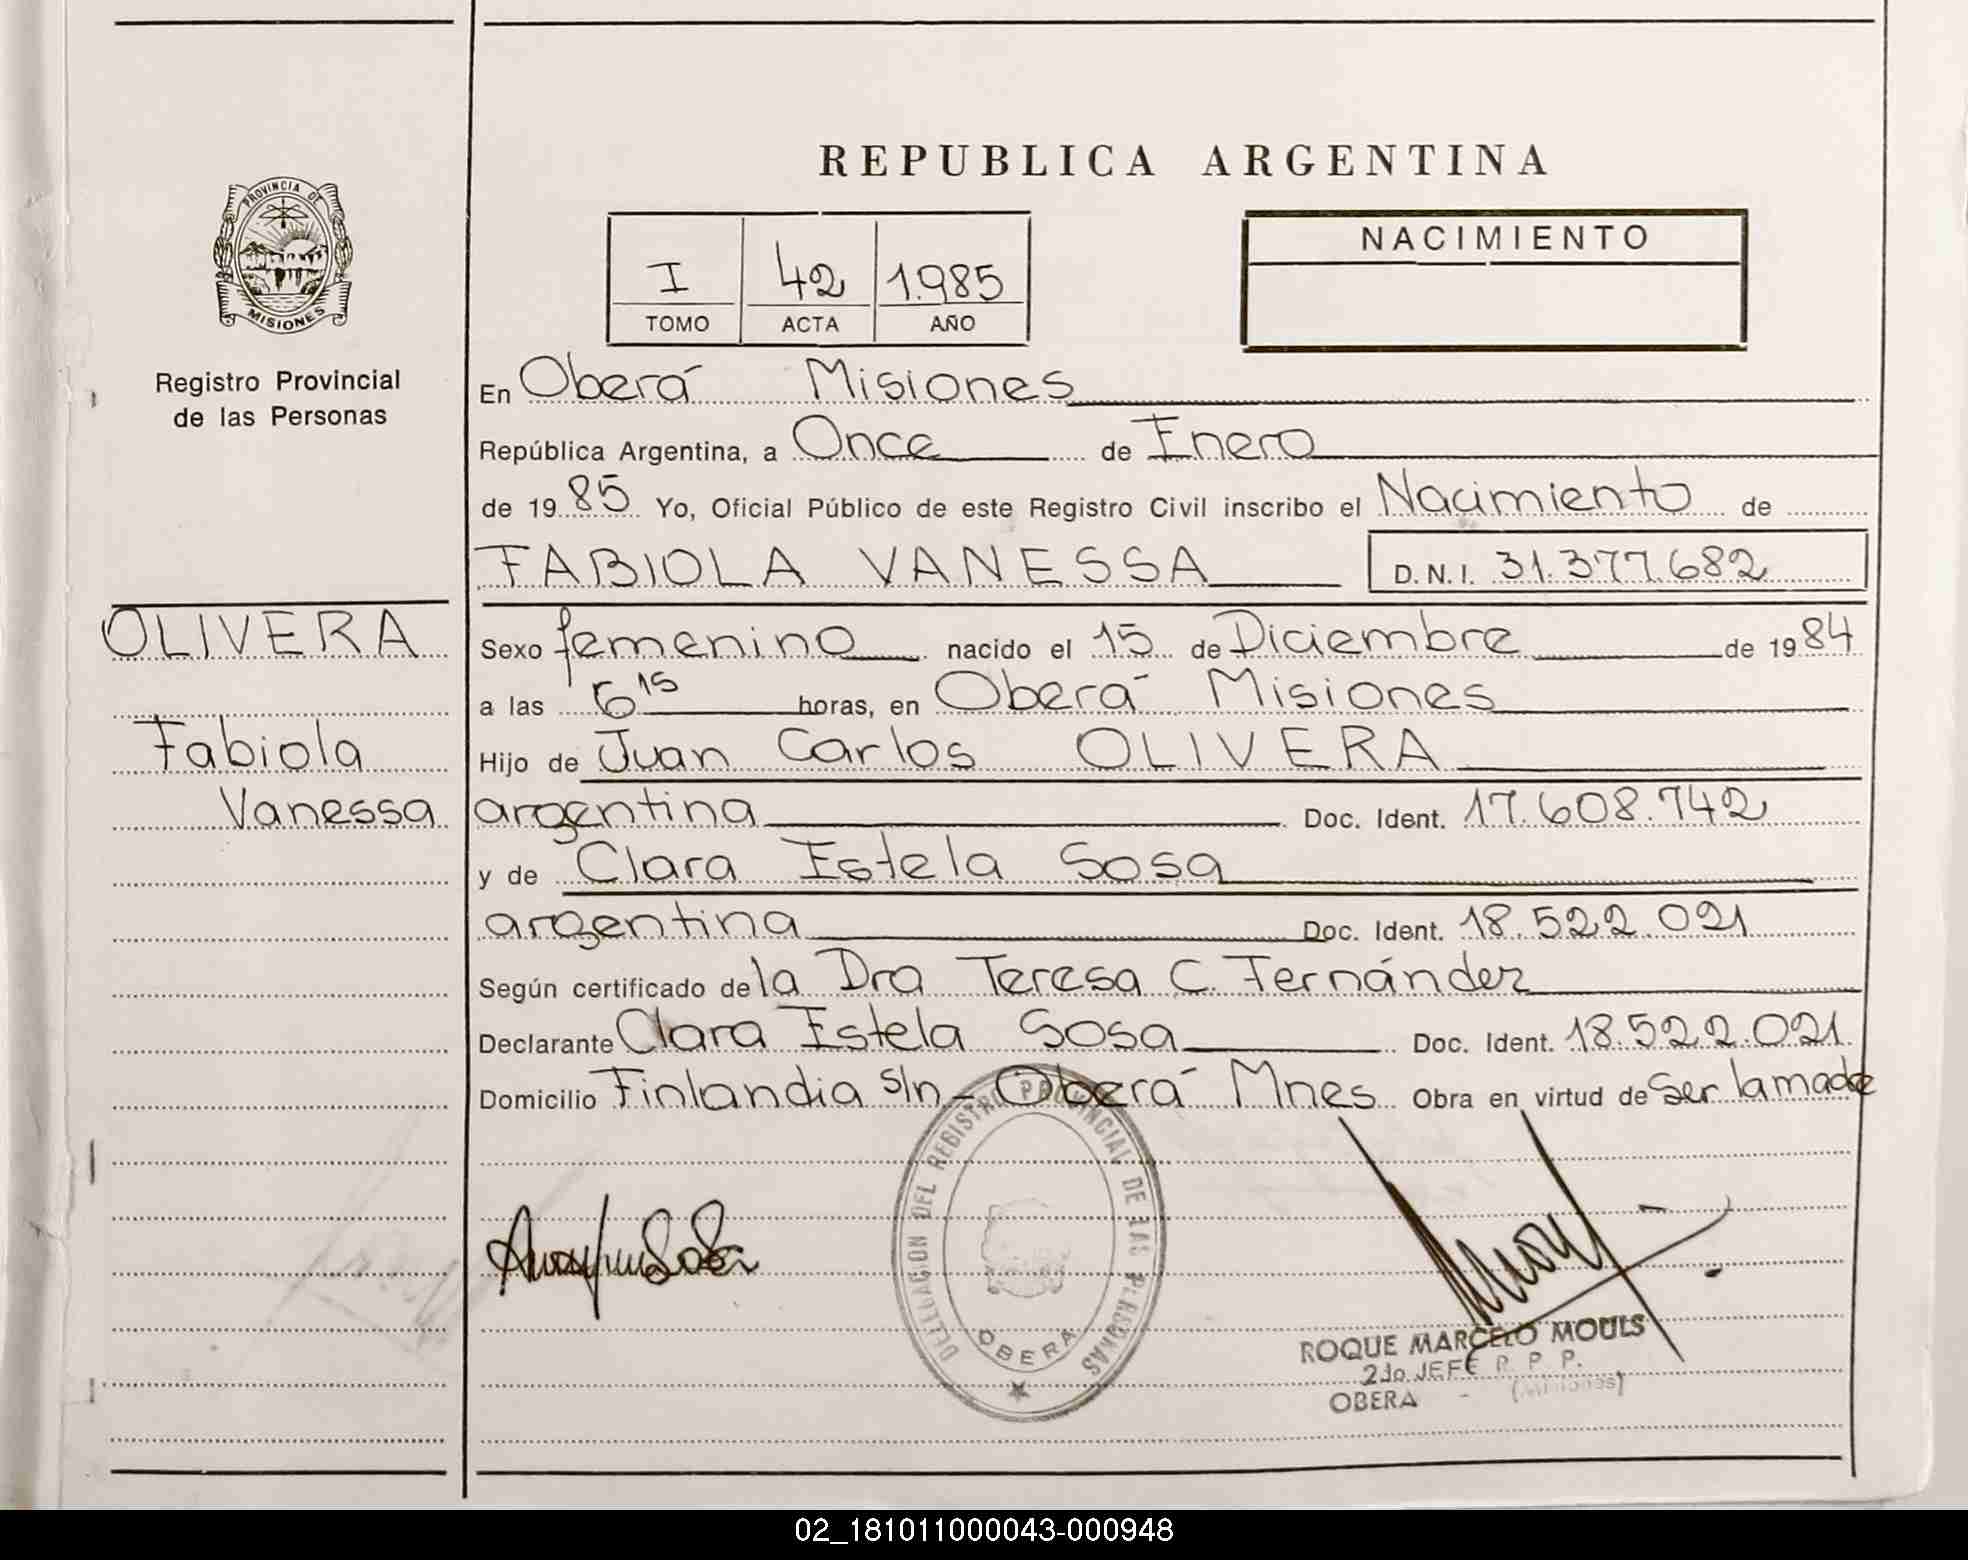 REPUBLICA ARGENTINA
PROVINCIA DE
MISIONES
Registro Provincial
de las Personas
I 42 1.985
TOMO ACTA AÑO
NACIMIENTO
En Oberá Misiones
República Argentina, a Once de Enero
de 1985 Yo, Oficial Público de este Registro Civil inscribo el Nacimiento de
FABIOLA VANESSA D.N.I. 31.377.682
OLIVERA
Fabiola
Vanessa
Sexo femenino nacido el 15 de Diciembre de 1984
a las 6 15 horas, en Oberá Misiones
Hijo de Juan Carlos OLIVERA
argentina Doc. Ident. 17.608.742
y de Clara Estela Sosa
argentina Doc. Ident. 18.522.021
Según certificado de la Dra Teresa C. Fernández
Declarante Clara Estela Sosa Doc. Ident. 18.522.021.
Domicilio Finlandia s/n - Oberá Mnes Obra en virtud de ser la madre
DELEGACION DEL REGISTRO PROVINCIAL DE LAS PERSONAS
OBERA
ROQUE MARCELO MOULS
2do JEFE R. P. P.
OBERA - (Misiones)
02_181011000043-000948